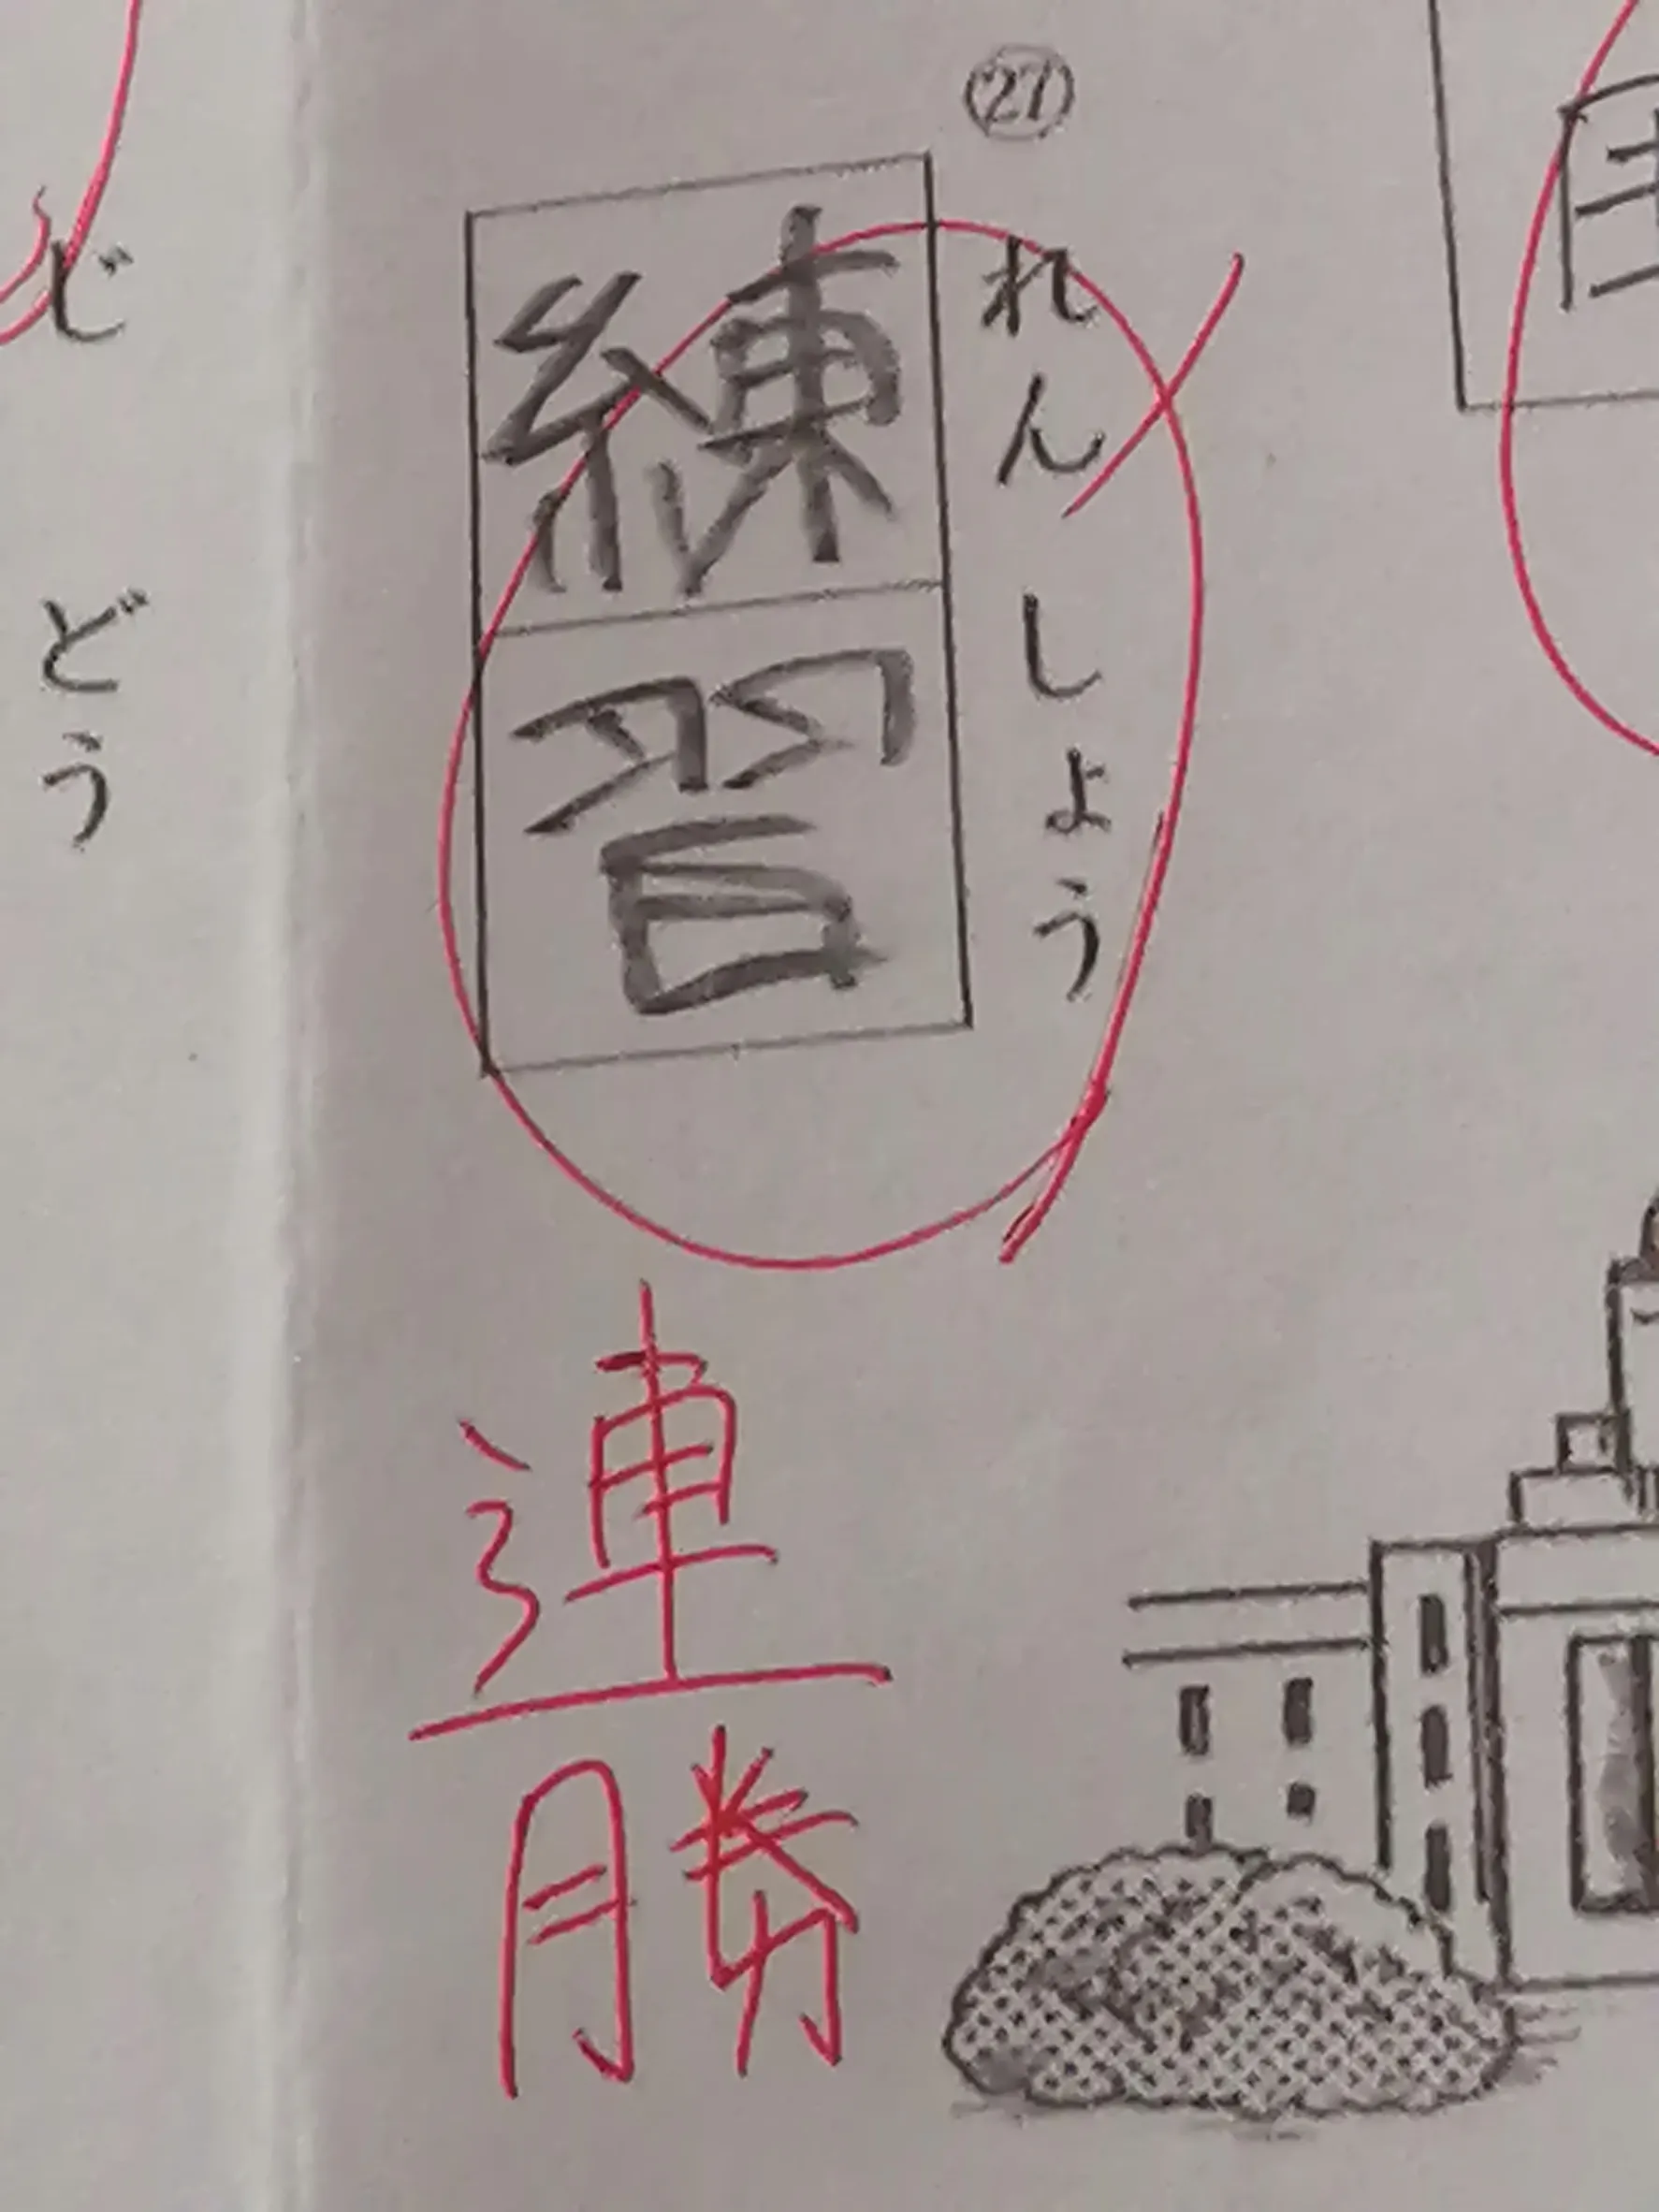 ㉗
れんしょう
練習
連
勝
じどう